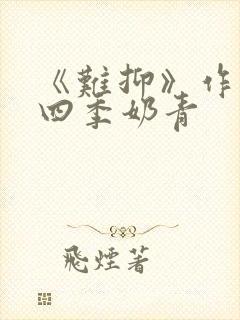 《難抑》作
四季奶青
飛煙著